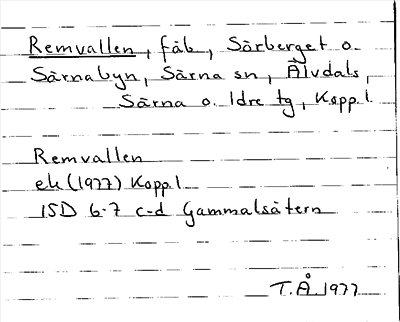 Remvallen, fäb, Särberget o.
Särnabyn, Särna sn, Älvdals,
Särna o. Idre tg, Kopp.l.
Remvallen
ek (1977) Kopp.l
15D 6-7 c-d Gammalsätern
T.Å 1977